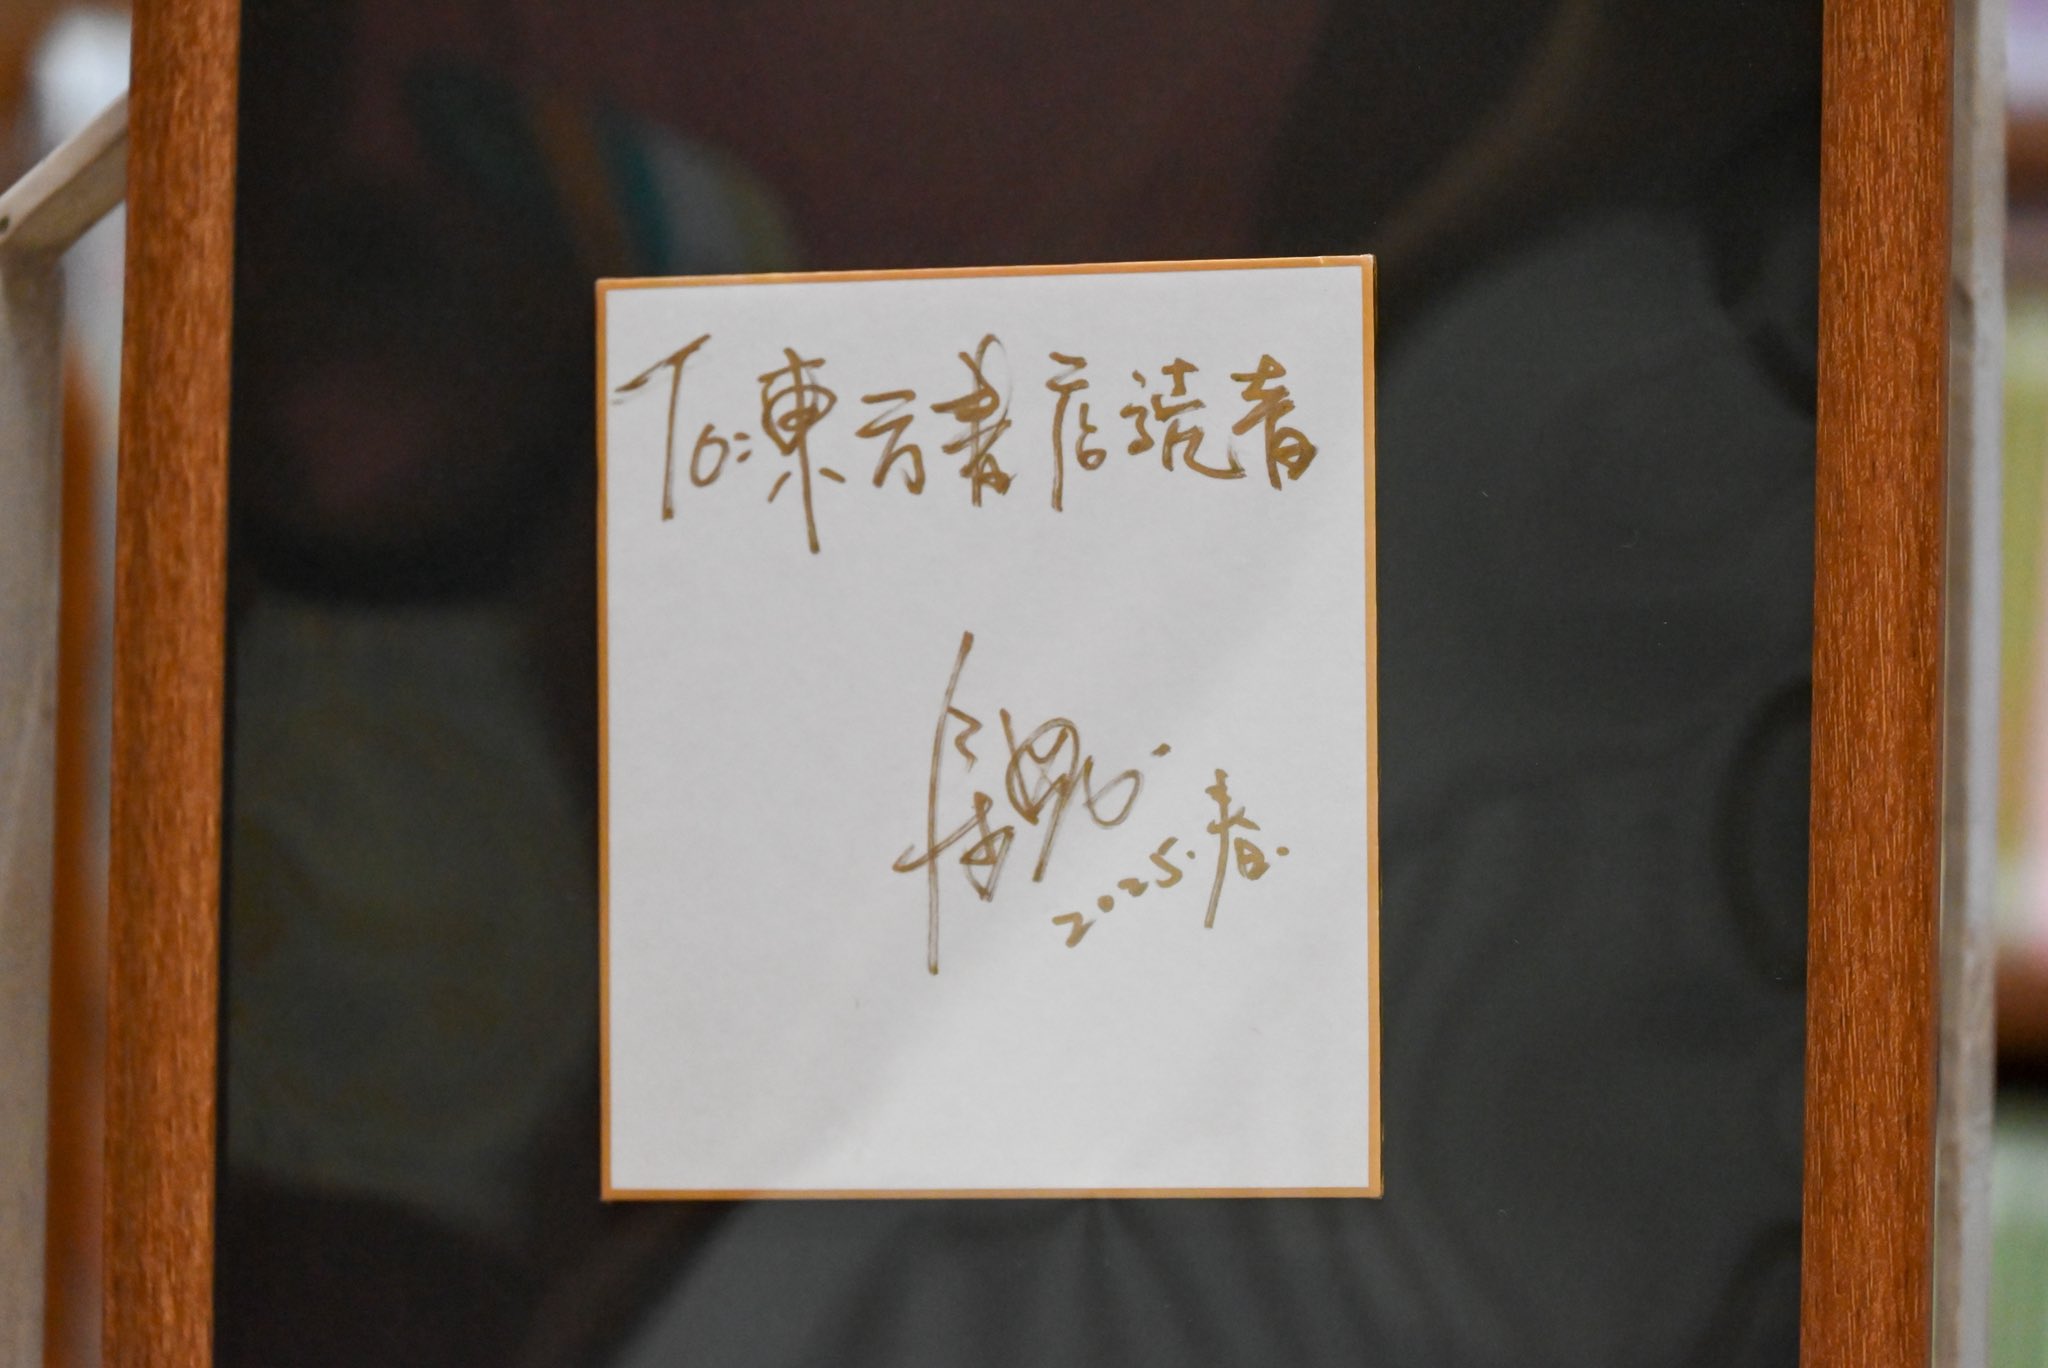 To:東方書店読者
2025.春.